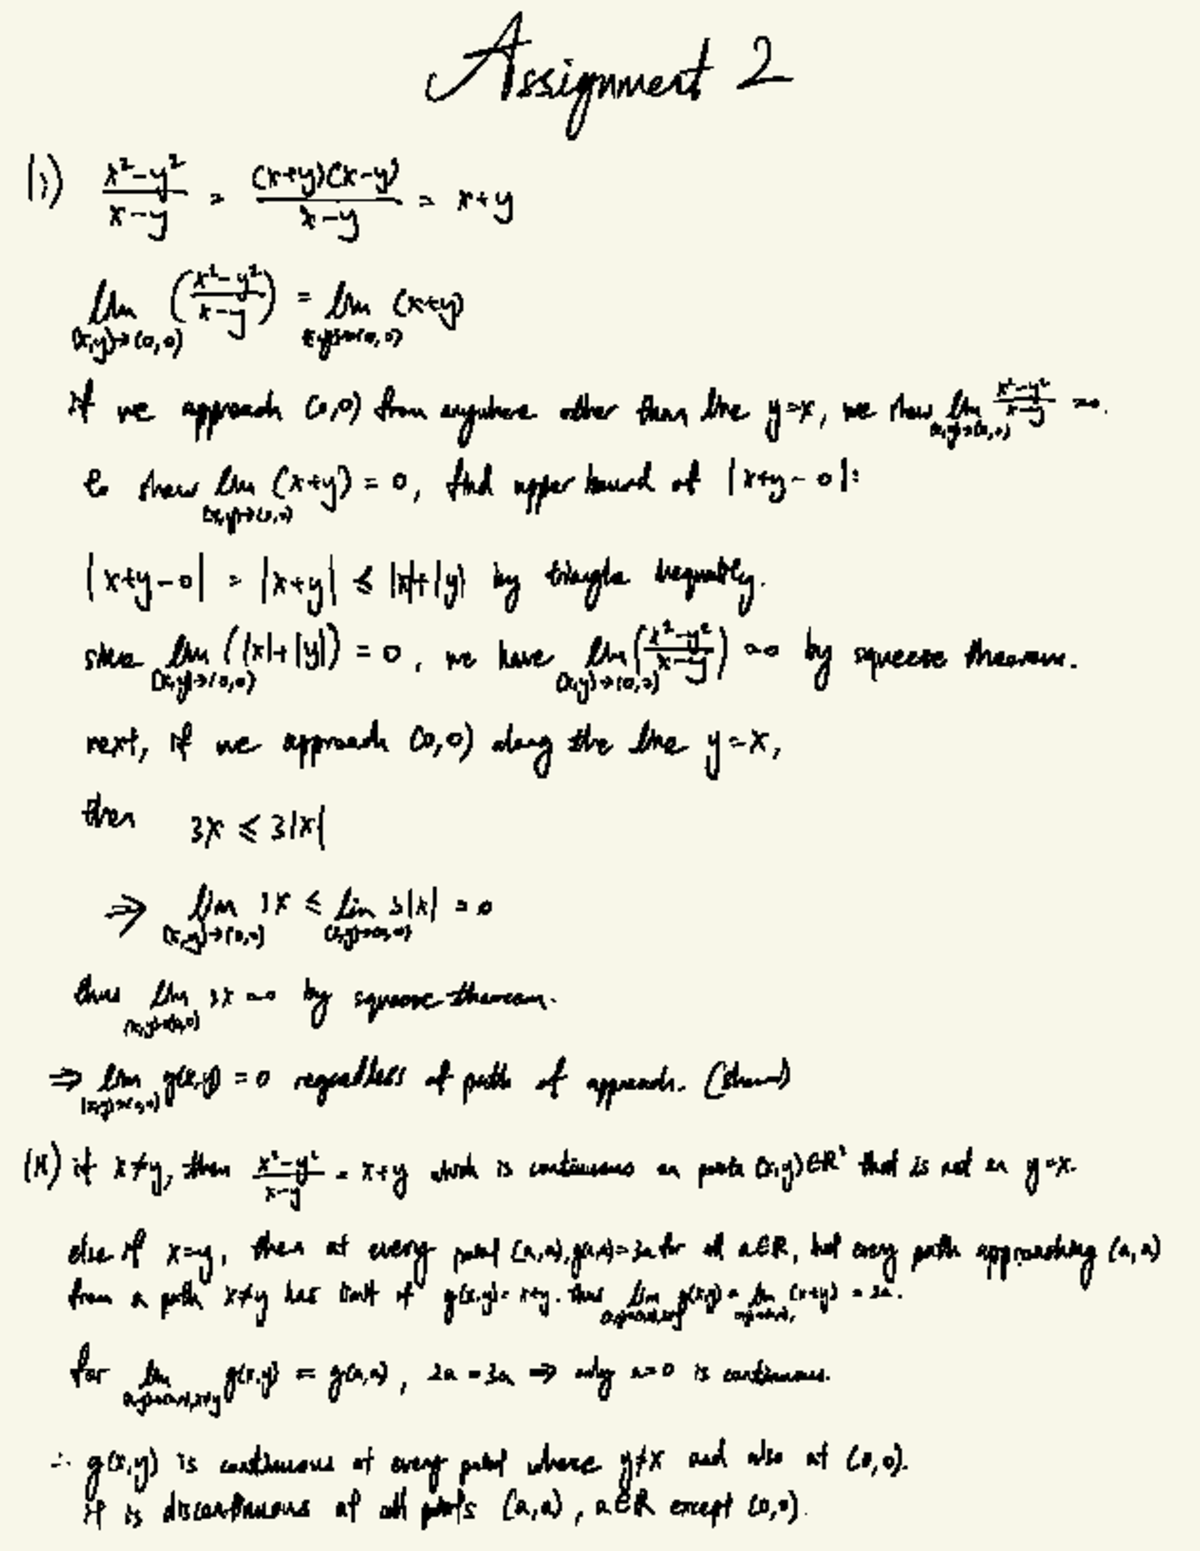 Assignment 2
(i) (x²-y²)/(x-y) = ((x+y)(x-y))/(x-y) = x+y
lim (x,y)→(0,0) ((x²-y²)/(x-y)) = lim (x,y)→(0,0) (x+y)
if we approach (0,0) from anywhere other than line y=x, we show lim (x,y)→(0,0) (x²-y²)/(x-y) =0.
to show lim (x,y)→(0,0) (x+y) = 0, find upper bound of |x+y-0|:
|x+y-0| = |x+y| ≤ |x|+|y| by triangle inequality.
since lim (x,y)→(0,0) (|x|+|y|) = 0, we have lim (x,y)→(0,0) ((x²-y²)/(x-y)) =0 by squeeze theorem.
next, if we approach (0,0) along the line y=x,
then 3x ≤ 3|x|
⇒ lim (x,y)→(0,0) 3x ≤ lim (x,y)→(0,0) 3|x| = 0
thus lim (x,y)→(0,0) 3x =0 by squeeze theorem.
⇒ lim (x,y)→(0,0) g(x,y) = 0 regardless of path of approach. (shown)
(ii) if x≠y, then (x²-y²)/(x-y) = x+y which is continuous on points (x,y)∈R² that is not on y=x.
else if x=y, then at every point (a,a), g(a,a)=3a for all a∈R, but every path approaching (a,a)
from a path x≠y has limit of g(x,y)= x+y. thus lim g(x,y) = lim (x+y) = 2a.
for lim (x,y)→(a,a), x≠y g(x,y) = g(a,a), 2a = 3a ⇒ only a=0 is continuous.
∴ g(x,y) is continuous at every point where y≠x and also at (0,0).
it is discontinuous at all points (a,a), a∈R except (0,0).